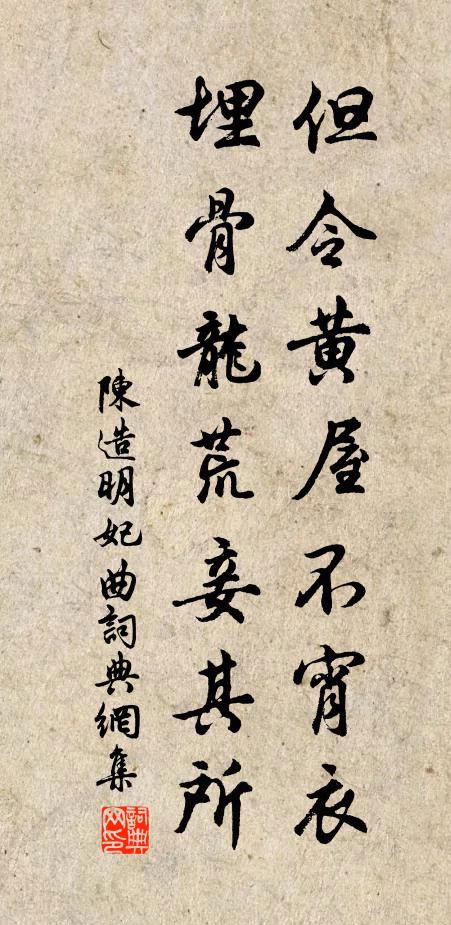 但令黄屋不宵衣
埋骨龍荒妾其所
陳造明妃曲詞典網集
詞典
网印